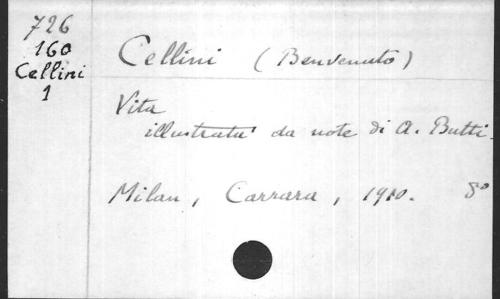 726
160
Cellini
1
Cellini (Benvenuto)
Vita
illustrata da note di A. Butti.
Milan, Carrara, 1910. 8°